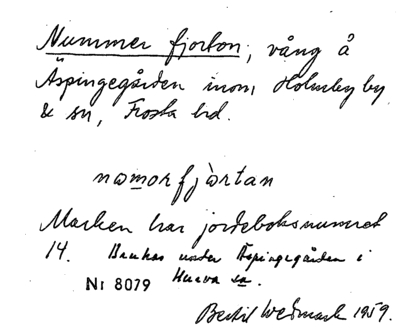 Nummer fjorton, vång å
Äspingegården inom Holmby by
& sn, Frosta hd.
nomorfjòrtan
Marken har jordeboksnumret
14. Brukas under Äspingegården i
Nr 8079 Hurva sn.
Bertil Wedmark 1959.